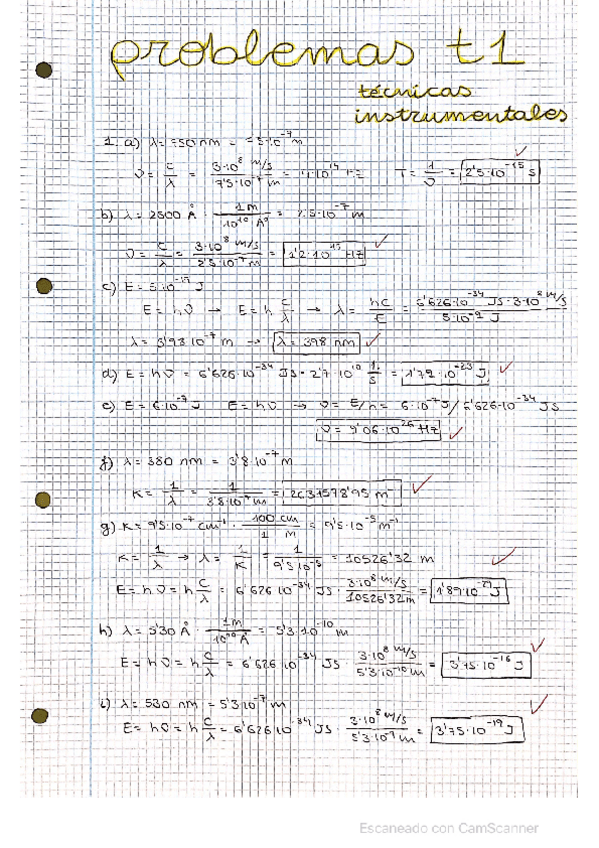 problemas t1
técnicas
instrumentales
1. a) λ = 750 nm = 7'5·10⁻⁷ m
ν = c/λ = 3·10⁸ m/s / 7'5·10⁻⁷ m = 4·10¹⁴ Hz T = 1/ν = 2'5·10⁻¹⁵ s ✓
b) λ = 2500 Å · 1m / 10¹⁰ Å = 2'5·10⁻⁷ m
ν = c/λ = 3·10⁸ m/s / 2'5·10⁻⁷ m = 1'2·10¹⁵ Hz ✓
c) E = J
E = hν → E = h c/λ → λ = hc/E = 6'626·10⁻³⁴ JS·3·10⁸ m/s / J
λ = 3'98·10⁻⁷ m → λ = 398 nm ✓
d) E = hν = 6'626·10⁻³⁴ JS · 2'7·10¹⁰ 1/s = 1'79·10⁻²³ J ✓
e) E = 6·10⁻⁷ J E = hν → ν = E/h = 6·10⁻⁷ J / 6'626·10⁻³⁴ JS
ν = 9'06·10²⁶ Hz ✓
f) λ = 380 nm = 3'8·10⁻⁷ m
K = 1/λ = 1 / 3'8·10⁻⁷ m = 2631578'95 m ✓
g) K = 9'5·10⁻⁷ cm⁻¹ · 100 cm / 1 m = 9'5·10⁻⁵ m⁻¹
K = 1/λ → λ = 1/K = 1 / 9'5·10⁻⁵ = 10526'32 m ✓
E = hν = h c/λ = 6'626·10⁻³⁴ JS · 3·10⁸ m/s / 10526'32 m = 1'89·10⁻²⁹ J
h) λ = 5'30 Å · 1m / 10¹⁰ Å = 5'3·10⁻¹⁰ m
E = hν = h c/λ = 6'626·10⁻³⁴ JS · 3·10⁸ m/s / 5'3·10⁻¹⁰ m = 3'75·10⁻¹⁶ J ✓
i) λ = 530 nm = 5'3·10⁻⁷ m
E = hν = h c/λ = 6'626·10⁻³⁴ JS · 3·10⁸ m/s / 5'3·10⁻⁷ m = 3'75·10⁻¹⁹ J ✓
Escaneado con CamScanner